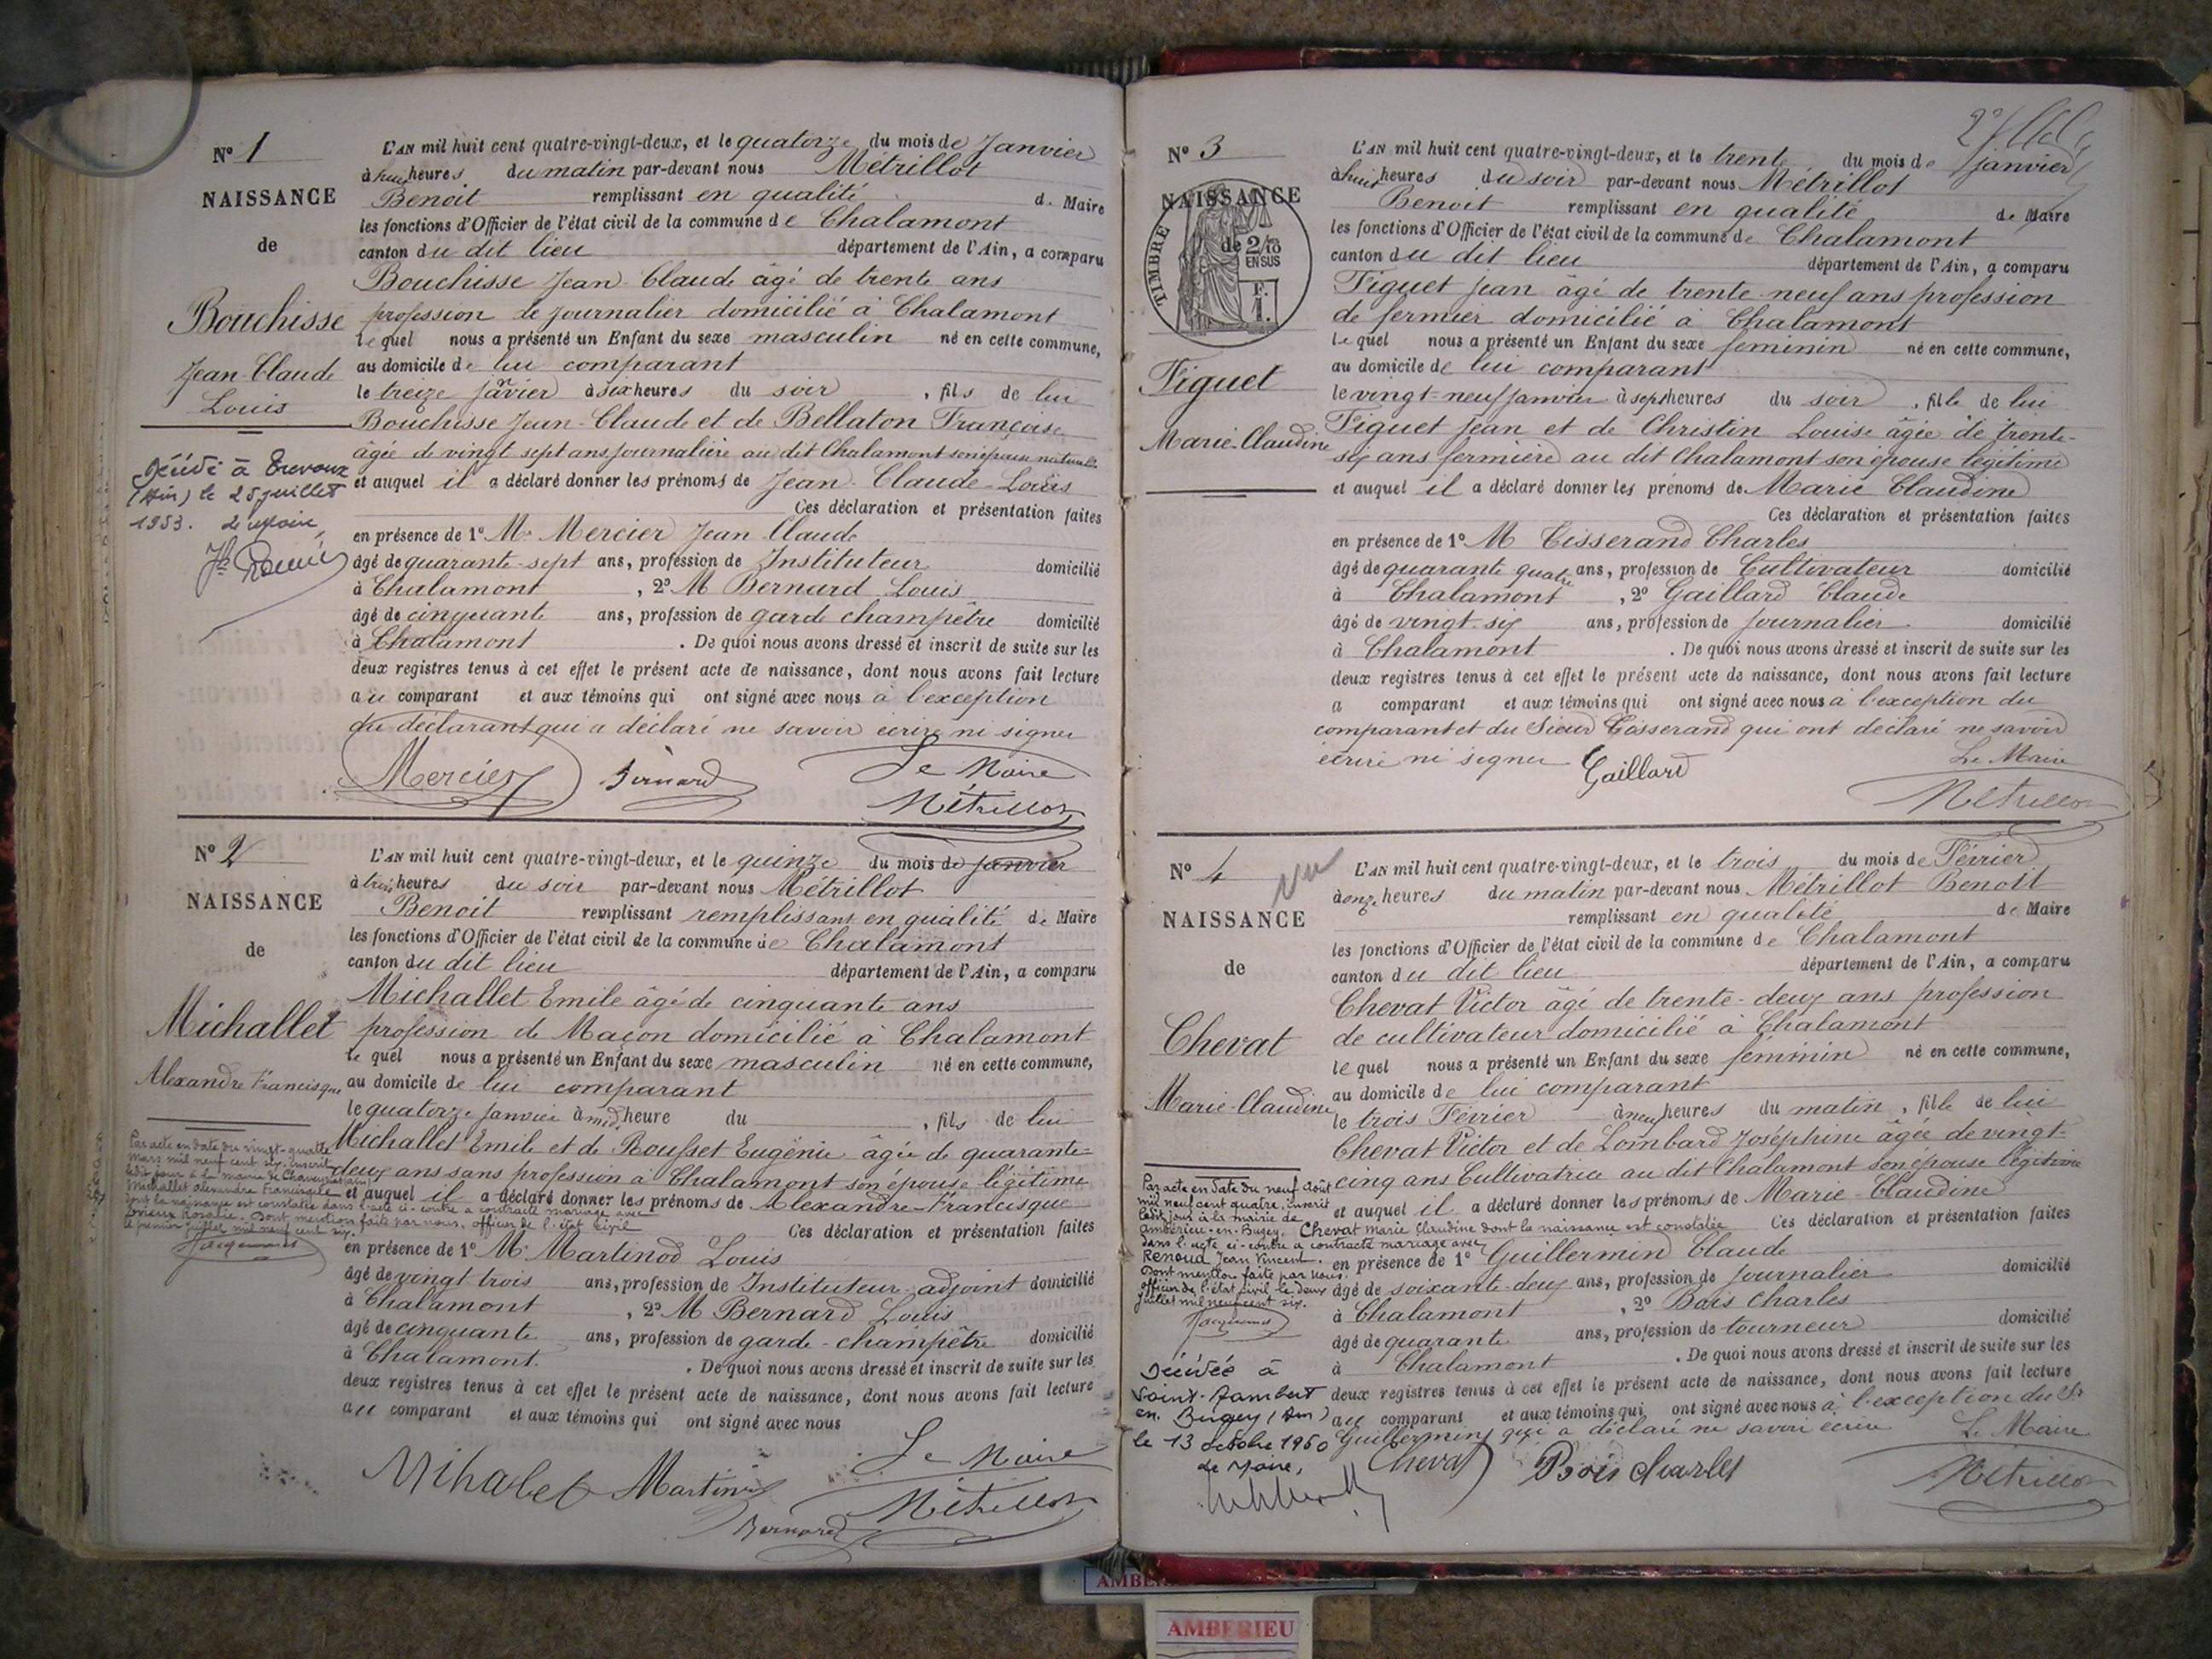 N° 1
NAISSANCE
de
Bouchisse
Jean-Claude
Louis
Décédé à Trévoux
(Ain) le 25 juillet
1953. Le Maire,
L'AN mil huit cent quatre-vingt-deux, et le quatorze du mois de Janvier
à huit heures du matin par-devant nous Métrillot
Benoit remplissant en qualité de Maire
les fonctions d'Officier de l'état civil de la commune de Chalamont
canton du dit lieu département de l'Ain, a comparu
Bouchisse Jean Claude âgé de trente ans
profession de journalier domicilié à Chalamont
lequel nous a présenté un Enfant du sexe masculin né en cette commune,
au domicile de lui comparant
le treize janvier à six heures du soir, fils de lui
Bouchisse Jean-Claude et de Bellaton Françoise
âgée de vingt sept ans journalière au dit Chalamont son épouse
et auquel il a déclaré donner les prénoms de Jean-Claude-Louis
Ces déclaration et présentation faites
en présence de 1° M. Mercier Jean Claude
âgé de quarante-sept ans, profession de Instituteur domicilié
à Chalamont, 2° M Bernard Louis
âgé de cinquante ans, profession de garde champêtre domicilié
à Chalamont. De quoi nous avons dressé et inscrit de suite sur les
deux registres tenus à cet effet le présent acte de naissance, dont nous avons fait lecture
au comparant et aux témoins qui ont signé avec nous à l'exception
du déclarant qui a déclaré ne savoir écrire ni signer
Mercier Bernard Le Maire
Métrillot
N° 2
NAISSANCE
de
Michallet
Alexandre Francisque
Par acte en date du vingt-quatre
mars mil neuf cent six, inscrit
ledit jour à la mairie de
Michallet Alexandre Francisque
dont la naissance est constatée dans l'acte ci-contre a contracté mariage avec
Rosalie. Dont mention faite par nous, officier de l'état civil
le premier juillet mil neuf cent six.
L'AN mil huit cent quatre-vingt-deux, et le quinze du mois de janvier
à trois heures du soir par-devant nous Métrillot
Benoit remplissant remplissant en qualité de Maire
les fonctions d'Officier de l'état civil de la commune de Chalamont
canton du dit lieu département de l'Ain, a comparu
Michallet Emile âgé de cinquante ans
profession de Maçon domicilié à Chalamont
lequel nous a présenté un Enfant du sexe masculin né en cette commune,
au domicile de lui comparant
le quatorze janvier à midi heure du , fils de lui
Michallet Emile et de Rousset Eugénie âgée de quarante-
deux ans sans profession à Chalamont son épouse légitime
et auquel il a déclaré donner les prénoms de Alexandre-Francisque
Ces déclaration et présentation faites
en présence de 1° M. Martinod Louis
âgé de vingt trois ans, profession de Instituteur-adjoint domicilié
à Chalamont, 2° M Bernard Louis
âgé de cinquante ans, profession de garde-champêtre domicilié
à Chalamont. De quoi nous avons dressé et inscrit de suite sur les
deux registres tenus à cet effet le présent acte de naissance, dont nous avons fait lecture
au comparant et aux témoins qui ont signé avec nous
Le Maire
Mihalet Martinod Métrillot
Bernard
N° 3
NAISSANCE
de
TIMBRE
2/10
EN SUS
F.
1.
Figuet
Marie-Claudine
L'AN mil huit cent quatre-vingt-deux, et le trente du mois de janvier
à huit heures du soir par-devant nous Métrillot
Benoit remplissant en qualité de Maire
les fonctions d'Officier de l'état civil de la commune de Chalamont
canton du dit lieu département de l'Ain, a comparu
Figuet Jean âgé de trente-neuf ans profession
de fermier domicilié à Chalamont
lequel nous a présenté un Enfant du sexe féminin né en cette commune,
au domicile de lui comparant
le vingt-neuf janvier à sept heures du soir, fille de lui
Figuet Jean et de Christin Louise âgée de trente-
six ans fermière au dit Chalamont son épouse légitime
et auquel il a déclaré donner les prénoms de Marie Claudine
Ces déclaration et présentation faites
en présence de 1° M Tisserand Charles
âgé de quarante quatre ans, profession de Cultivateur domicilié
à Chalamont, 2° Gaillard Claude
âgé de vingt-six ans, profession de journalier domicilié
à Chalamont. De quoi nous avons dressé et inscrit de suite sur les
deux registres tenus à cet effet le présent acte de naissance, dont nous avons fait lecture
a comparant et aux témoins qui ont signé avec nous à l'exception du
comparant et du Sieur Tisserand qui ont déclaré ne savoir
écrire ni signer Gaillard Le Maire
Métrillot
N° 4
vu
NAISSANCE
de
Chevat
Marie-Claudine
Par acte en date du neuf août
mil neuf cent quatre, inscrit
ledit jour à la mairie de
Ambérieu-en-Bugey. Chevat Marie Claudine dont la naissance est constatée
dans l'acte ci-contre a contracté mariage avec
Renoud Jean Vincent.
Dont mention faite par nous,
officier de l'état civil le deux
juillet mil neuf cent six.
Décédée à
Saint-Rambert
en Bugey (Ain)
le 13 octobre 1960
Le Maire,
L'AN mil huit cent quatre-vingt-deux, et le trois du mois de Février
à onze heures du matin par-devant nous Métrillot Benoit
remplissant en qualité de Maire
les fonctions d'Officier de l'état civil de la commune de Chalamont
canton du dit lieu département de l'Ain, a comparu
Chevat Victor âgé de trente-deux ans profession
de cultivateur domicilié à Chalamont
lequel nous a présenté un Enfant du sexe féminin né en cette commune,
au domicile de lui comparant
le trois Février à neuf heures du matin, fille de lui
Chevat Victor et de Lombard Joséphine âgée de vingt-
cinq ans Cultivatrice au dit Chalamont son épouse légitime
et auquel il a déclaré donner les prénoms de Marie-Claudine
Ces déclaration et présentation faites
en présence de 1° Guillermin Claude
âgé de soixante-deux ans, profession de journalier domicilié
à Chalamont, 2° Bois Charles
âgé de quarante ans, profession de tourneur domicilié
à Chalamont. De quoi nous avons dressé et inscrit de suite sur les
deux registres tenus à cet effet le présent acte de naissance, dont nous avons fait lecture
au comparant et aux témoins qui ont signé avec nous à l'exception du Sr
Guillermin qui a déclaré ne savoir écrire Le Maire
Chevat Bois Charles Métrillot
AMBERIEU